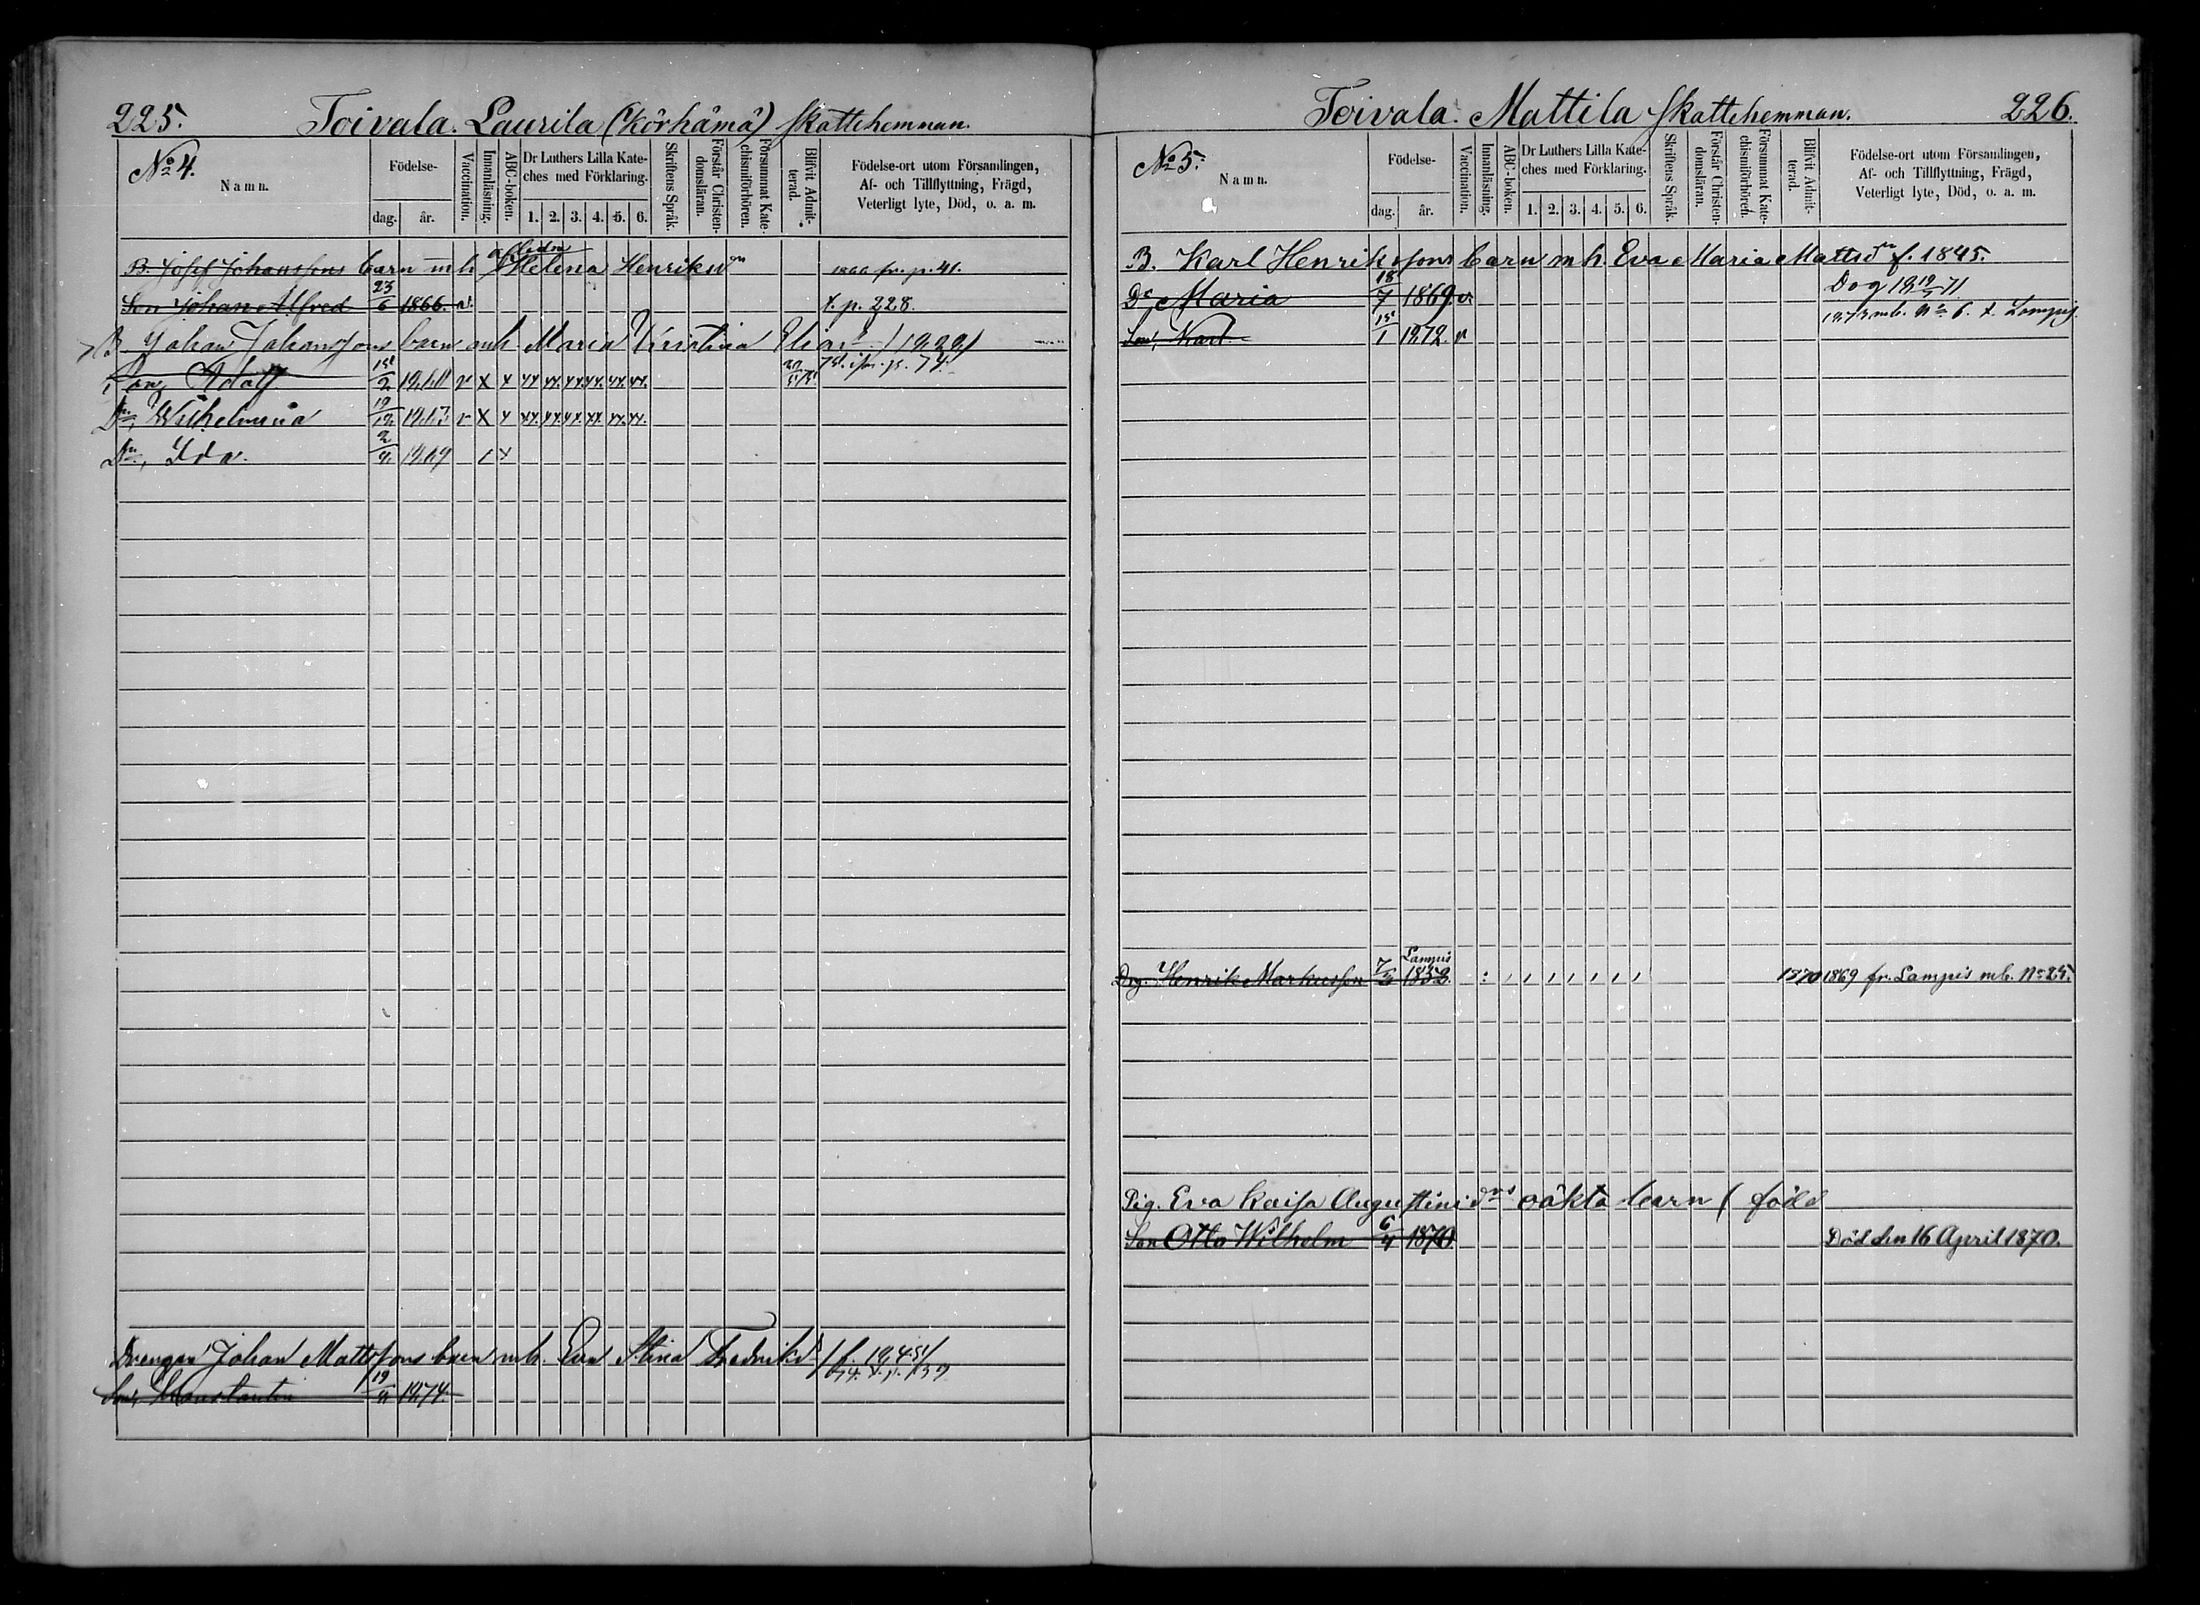 225. Toivala. Laurila (Körhämä) Skattehemman.
No 4.
Namn.
Födelse-
dag. år.
Vaccination.
Innanläsning.
ABC-boken.
Dr Luthers Lilla Kate-
ches med Förklaring.
1. 2. 3. 4. 5. 6.
Skriftens Språk.
Förstår Christen-
domsläran.
Försummat Kate-
chismiförhören.
Blifvit Admit-
terad.
Födelse-ort utom Församlingen,
Af- och Tillflyttning, Frägd,
Veterligt lyte, Död, o. a. m.
B. Josef Johanssons barn m h Helena Henriksdr 1866 fr. p. 41.
Son Johan Alfred 23/6 1866. v. t. p. 228.
B. Johan Johanssons barn m h Maria Kristina Elias
Son, Adolf 15/2 1860 v x x xx xx xx xx xx xx.
Dr, Wilhelmina 19/12 1863 v x x xx. xx. xx. xx. xx. xx.
Dr, Ida. 2/4. 1869
Drengen Johan Mattssons barn m h. Eva Stina Fredriksd.
Son, Konstantin 19/4 1874.
Toivala. Mattila Skattehemman. 226.
No 5.
Namn.
Födelse-
dag. år.
Vaccination.
Innanläsning.
ABC-boken.
Dr Luthers Lilla Kate-
ches med Förklaring.
1. 2. 3. 4. 5. 6.
Skriftens Språk.
Förstår Christen-
domsläran.
Försummat Kate-
chismiförhören.
Blifvit Admit-
terad.
Födelse-ort utom Församlingen,
Af- och Tillflyttning, Frägd,
Veterligt lyte, Död, o. a. m.
B. Karl Henrikssons barn m h. Eva Maria Mattsdr f. 1845.
Dr Maria 18/7 1869. v Dog
Son, Karl 15/1 1872. v 1873 mb. No 6. t. Lampis.
Lampis
Drg. Henrik Markusson 1852. 1870 1869 fr. Lampis mb. No 25.
Pig. Eva Kaisa Augustinidrs oäkta barn ( född
Son Otto Wilhelm 6/4 1870 Död den 16 April 1870.